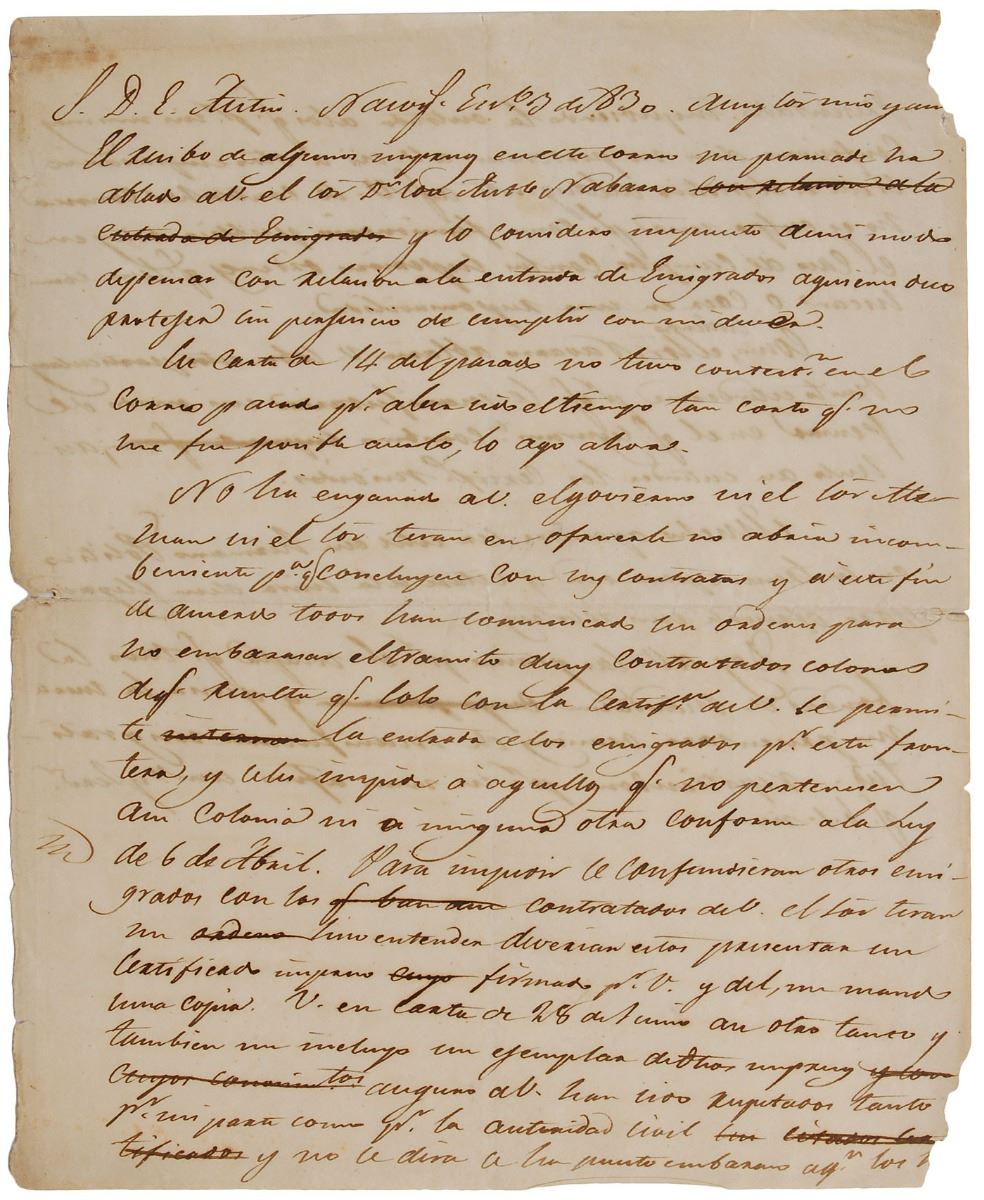 S. D. E. Austin. Nacogs. En.o 3 de 830. Muy Sor mio y am
El recibo de algunos impresos en este correo me persuade ha
ablado a V. el Sor Dn Jose Anto Nabarro con relacion a la
entrada de Emigrados y lo considero impuesto de mi modo
de pensar con relacion a la entrada de Emigrados a quienes deceo
protejer sin perjuicio de cumplir con mi dever.
Su carta de 14 del pasado no tuvo contestn en el
Correo pasado pr. aber sido el tiempo tan corto q. no
me fue posible aserlo, lo ago ahora.
No ha enganado a V. el govierno ni el Sor Ala-
man ni el Sor teran en ofrecerle no abria incom-
beniente pa. q. concluyera con sus contratas y a este fin
de acuerdo todos han comunicado sus ordenes para
no embarasar el transito de sus contratados colonos
de q. resulta q. solo con la Certifn. de V. se permi-
te internar la entrada de los emigrados pr. esta fron-
tera, y se les impide á aquellos q. no pertenecen
a su Colonia ni á ninguna otra conforme a la Ley
de 6 de Abril. Para impedir se confundieran otros emi-
grados con los q. ban a su contratados de V. el Sor teran
me ordeno hiso entender deverian estos presentar un
Certificado impreso cuyo firmado pr. V. y de el, me mando
una copia. V. en carta de 28 de Junio a su otro tanto y
tambien me incluyo un ejemplar de dhos impresos y los
cuyos documentos aseguro a V. han sido respetados tanto
pr. mi parte como pr. la autoridad civil los citados Cer-
tificados y no se dira se ha puesto embaraso a q. los